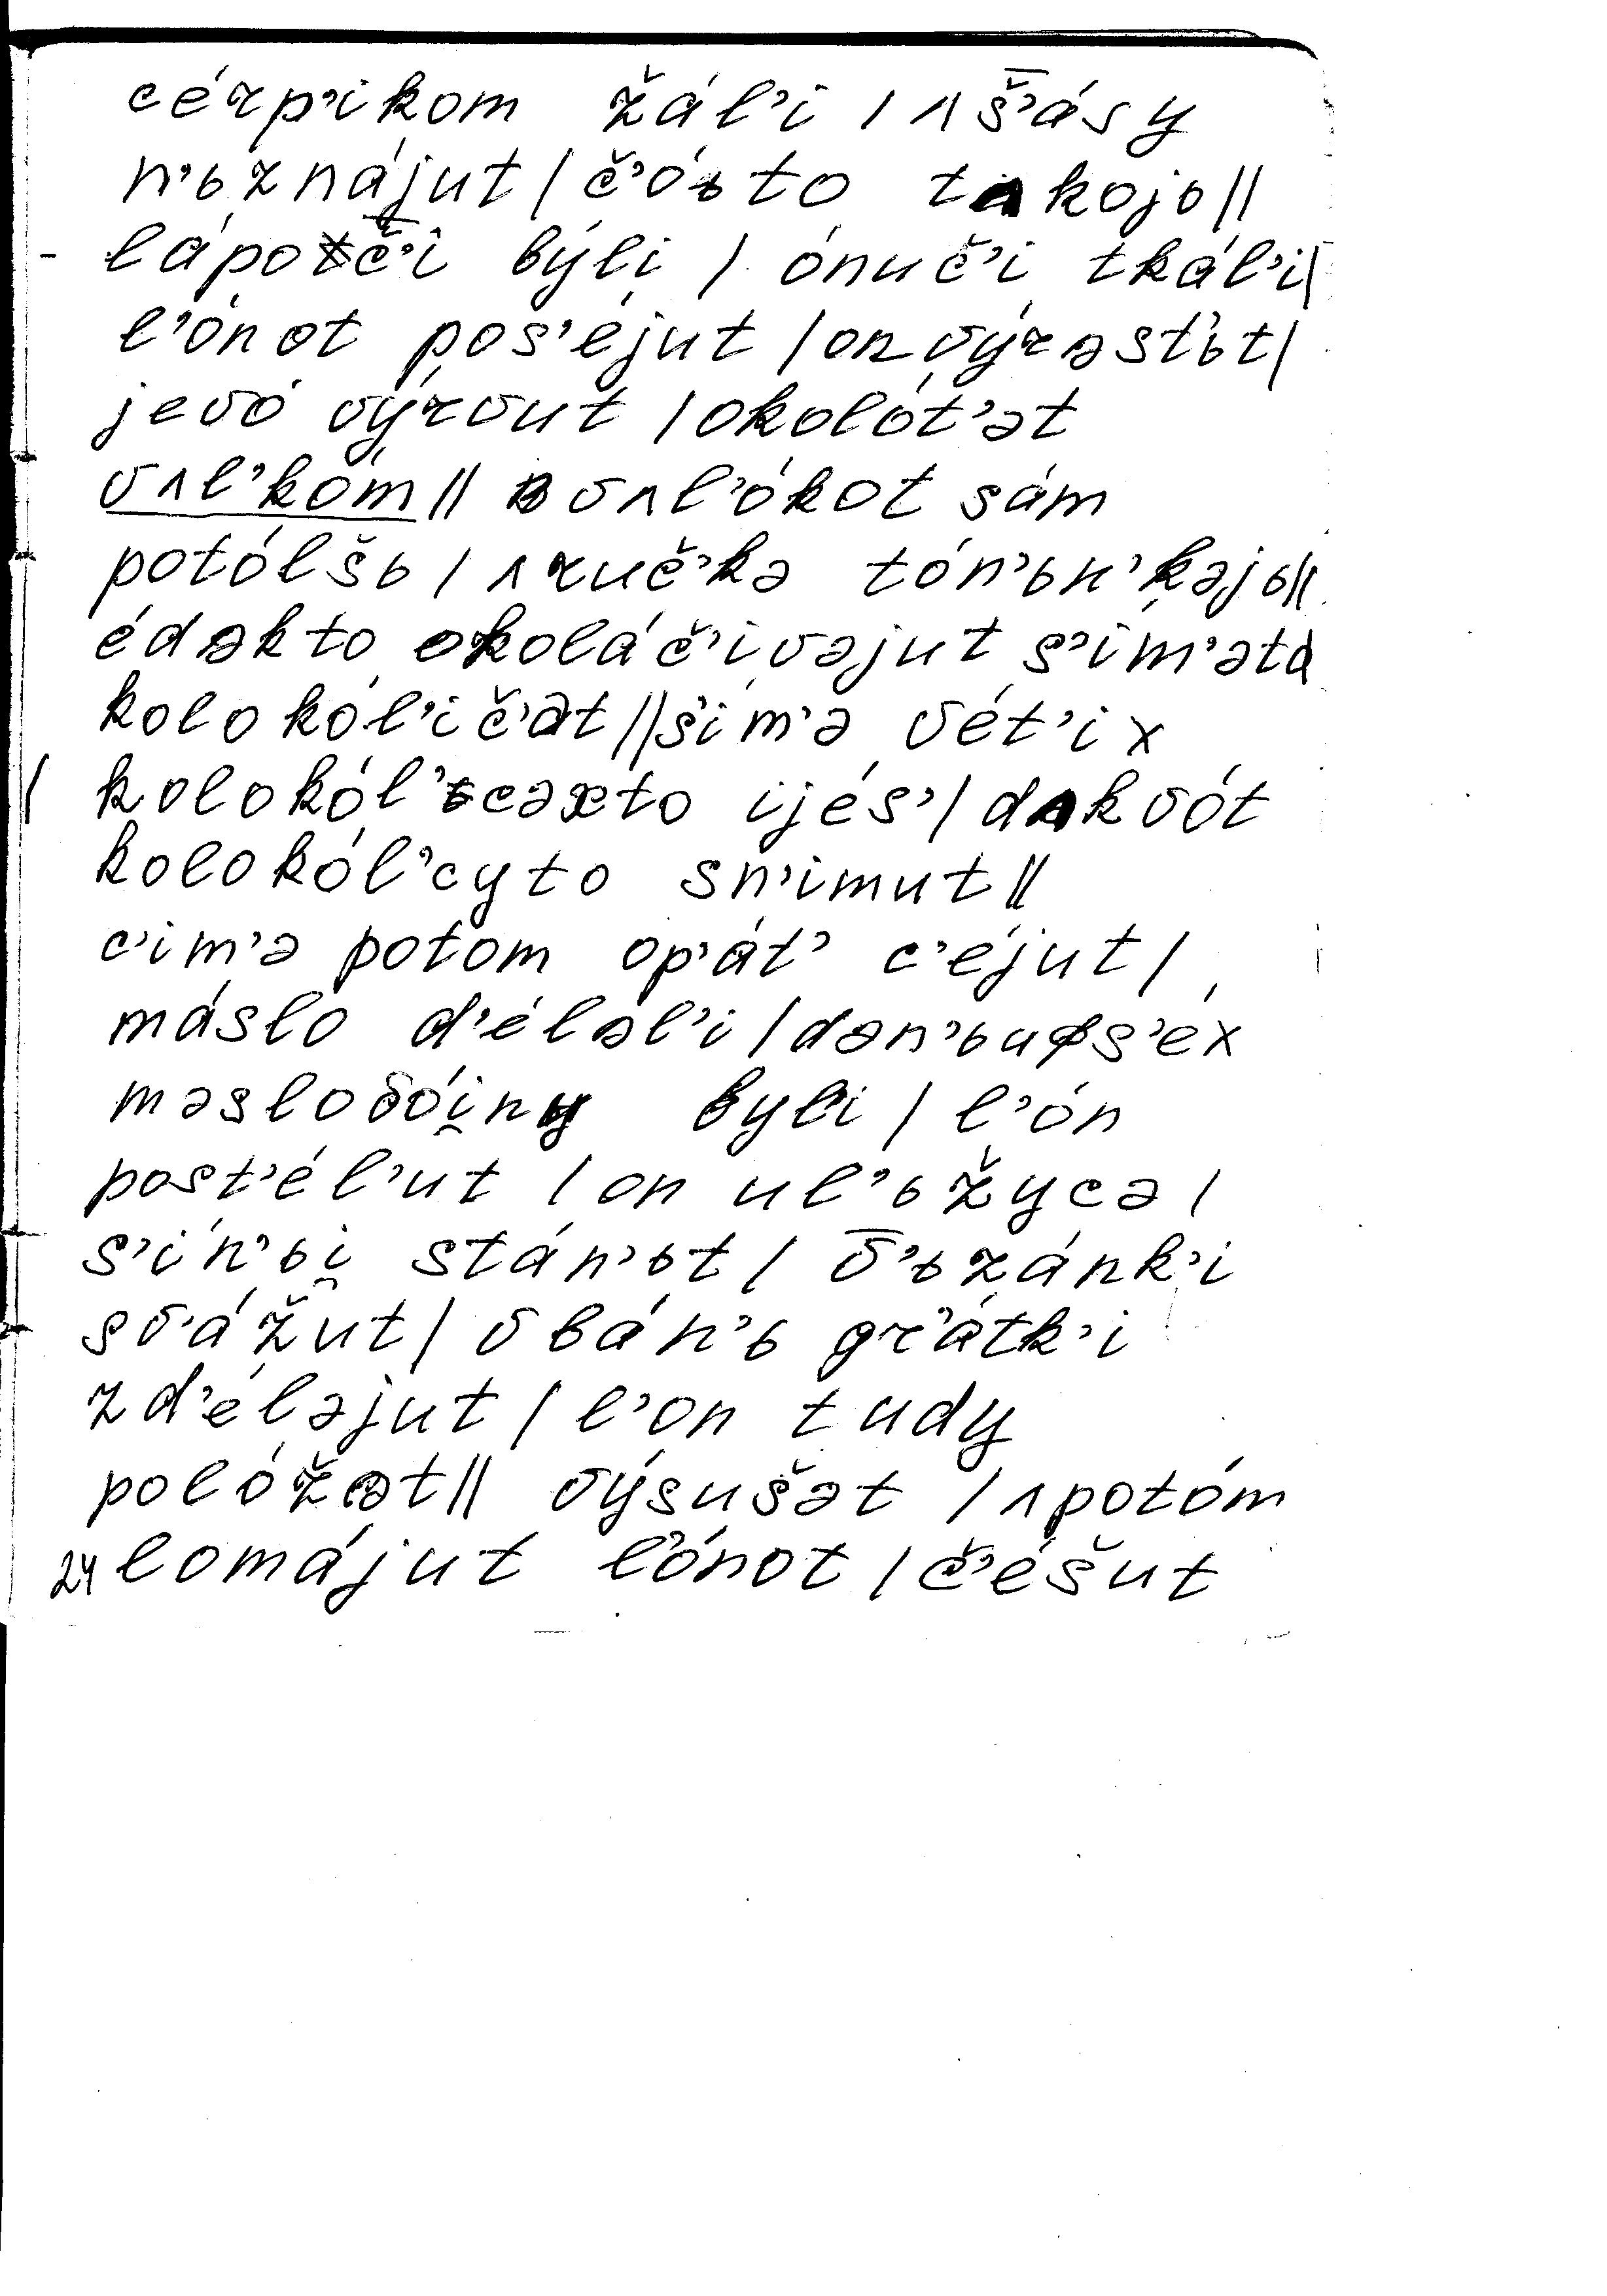 cérp’ikom žál’i / ʌ š̅’ásy
n’ьznájut / č’óьto tʌkojь ||
- lápoč̅’i býli / ónuč’i tkál’i |
l’ónot pos’éjut / on výrəst’ьt /
jevó výrvut / okolót’ət
vʌl’kóm || vʌl’ókot sám
potólšь / ʌ ruč’kə tón’ьn’kəjь ||
édəkto okoláč’ivəjut s’ím’ətə
kolokól’ič’ət || s’ím’ə vét’ix
| kolokól’cəxto ijés’ / dʌkvót
kolokól’cyto sn’imut ||
c’im’ə potom op’át’ c’éjut /
máslo d’éləl’i / dən’ьuфs’éx
məslobói̯ny byl’i / l’ón
post’él’ut / on ul’ьžycə /
s’ín’ьi̯ stán’ьt / v̅’ьzánk’i
sv’ážut / vbán’ь gr’átk’i
zd’éləjut / l’on tudy
polóžət || výsušət / ʌ potóm
24 lomájut l’ónot / č’éšut